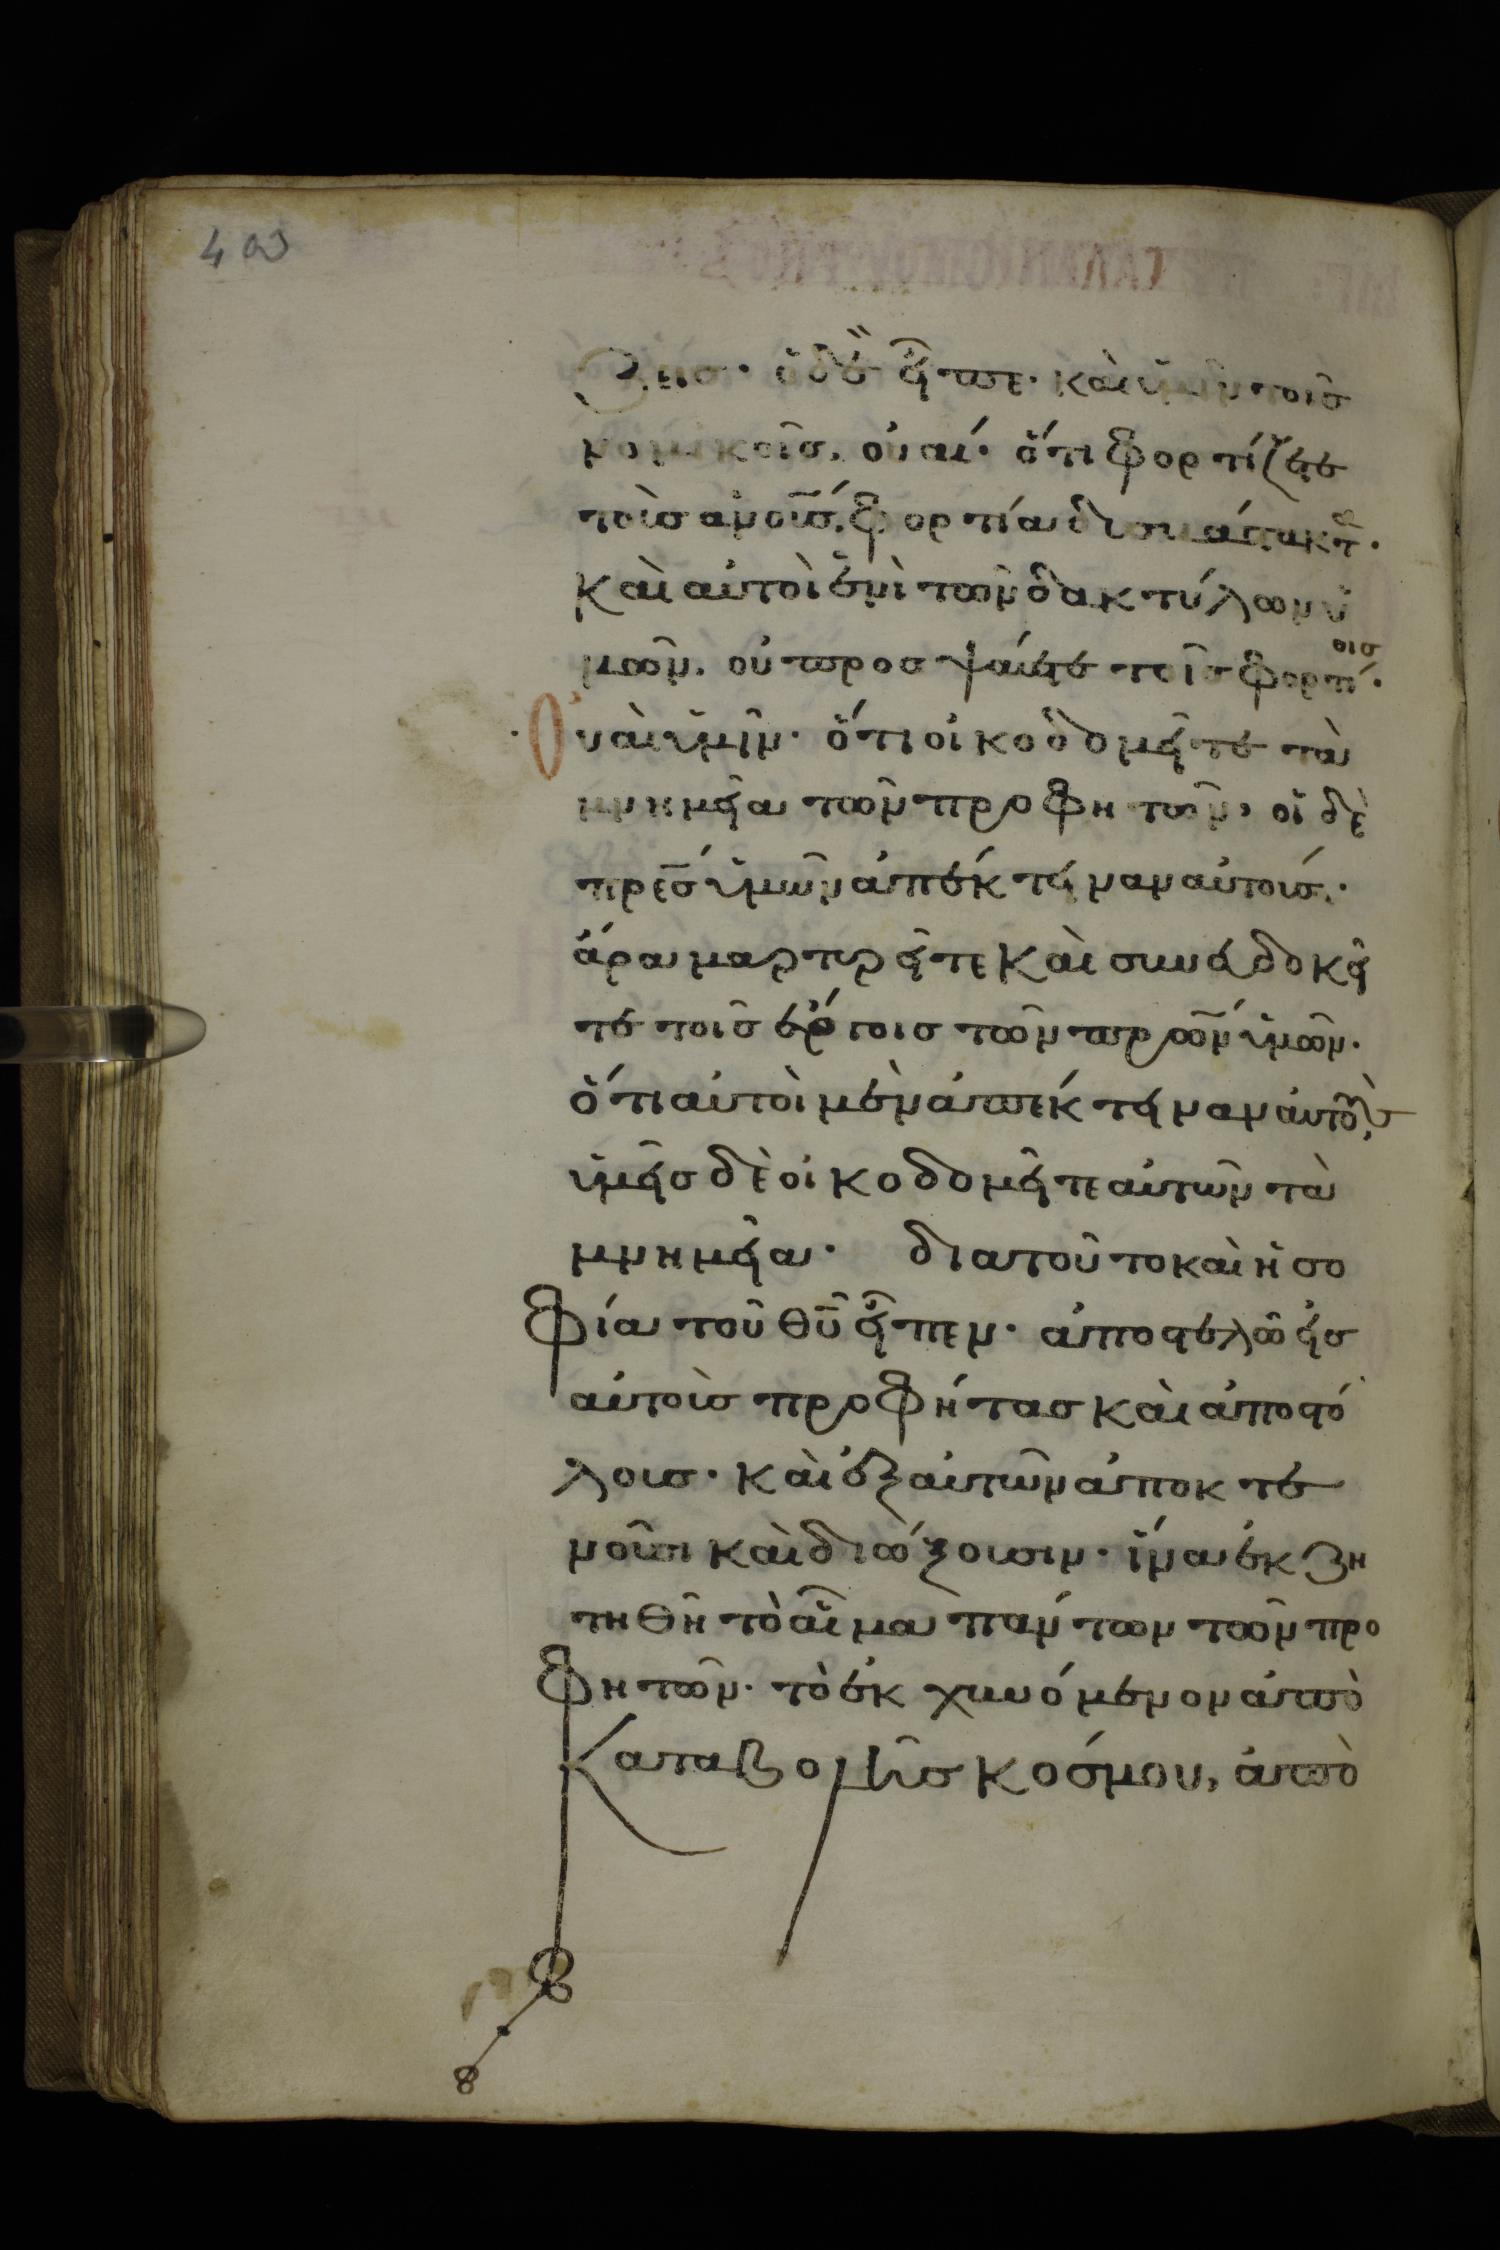 ζεισ· ὁ δὲ εἶπε· καὶ ὑμῖν τοῖσ
νομικοῖσ, οὐαί· ὅτι φορτίζετε
τοὺσ ἀνο̅υ̅σ, φορτία δυσβάστακτα·
καὶ αὐτοὶ ἑνὶ τῶν δακτύλων ὑ
μῶν, οὐ προσψαύετε τοῖσ φορτίοισ·
Οὐαὶ ὑμῖν· ὅτι οἰκοδομεῖτε τὰ
μνημεῖα τῶν προφητῶν, οἱ δὲ
πρε̅σ ὑμῶν ἀπέκτειναν αὐτούσ·
ἄρα μαρτυρεῖτε καὶ συνευδοκεῖ
τε τοῖσ ἔργοισ τῶν πρω̅ν ὑμῶν·
ὅτι αὐτοὶ μὲν ἀπέκτειναν αὐτοὺσ,
ὑμεῖσ δὲ οἰκοδομεῖτε αὐτῶν τὰ
μνημεῖα· διατοῦτο καὶ ἡ σο
φία τοῦ θυ̅ εἶπεν· ἀποστελῶ εἰσ
αὐτοὺσ προφήτασ καὶ ἀποστό
λουσ· καὶ ἐξ αὐτῶν ἀποκτε
νοῦσι καὶ διώξουσιν· ἵνα ἐκζη
τηθῆ τὸ αἷμα πάντων τῶν προ
φητῶν· τὸ ἐκχυνόμενον ἀπὸ
καταβολῆσ κόσμου, ἀπὸ